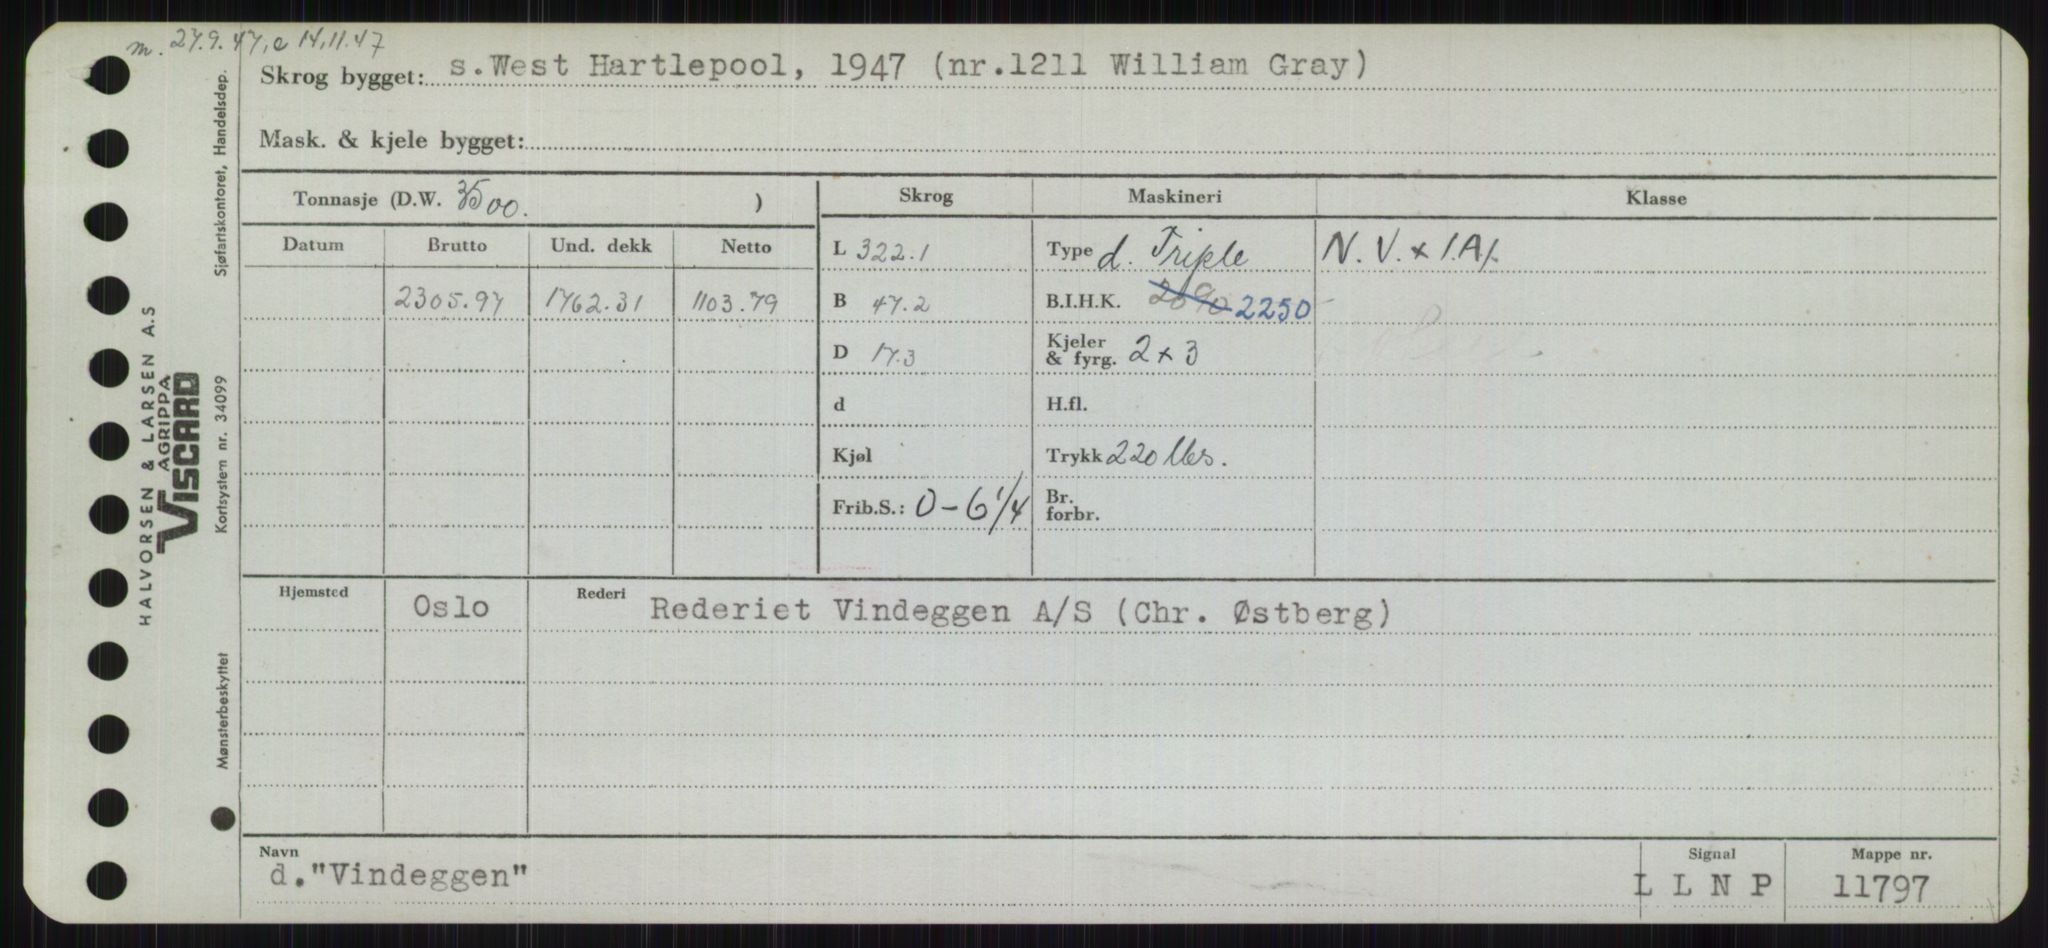 m. 27.9.47, e 14.11.47
Skrog bygget: s. West Hartlepool, 1947 (nr.1211 William Gray)
Mask. & kjele bygget:
Tonnasje (D.W. 3500. )
Skrog Maskineri Klasse
Datum Brutto Und. dekk Netto
L 322.1 Type d. Triple N.V. + 1.A1.
2305.97 1762.31 1103.79 B 47.2 B.I.H.K. 2690 2250
D 17.3 Kjeler & fyrg. 2 x 3
d H.fl.
Kjøl Trykk 220 lbs.
Frib.S.: 0-6 1/4 Br. forbr.
Hjemsted Oslo Rederi Rederiet Vindeggen A/S (Chr. Østberg)
Navn Signal Mappe nr.
d."Vindeggen" L L N P 11797
HALVORSEN & LARSEN A.S
AGRIPPA
VISCARD
Mønsterbeskyttet Kortsystem nr. 34099 Sjøfartskontoret, Handelsdep.